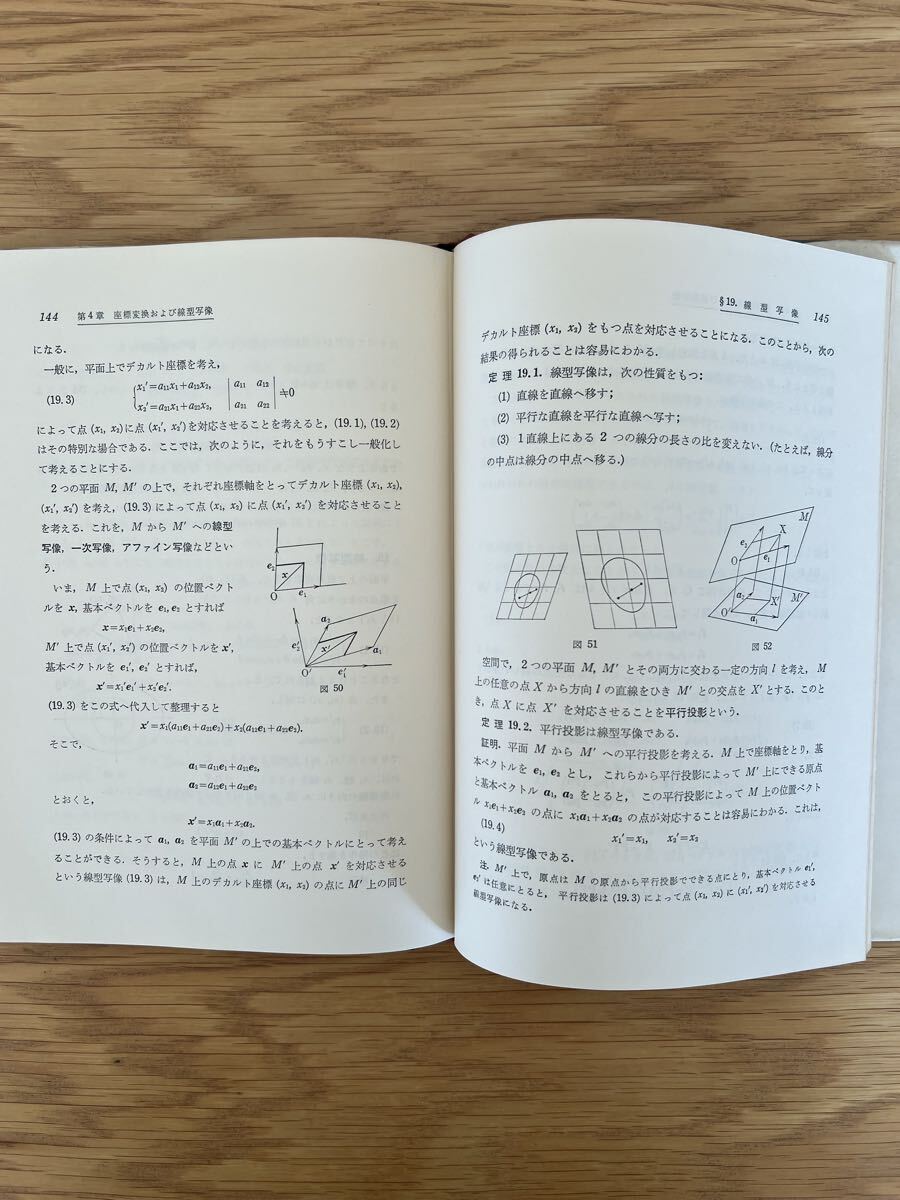 144 第4章 座標変換および線型写像
になる．
一般に，平面上でデカルト座標を考え，
(19.3) {x₁′=a₁₁x₁+a₁₂x₂, |a₁₁ a₁₂|
x₂′=a₂₁x₁+a₂₂x₂, |a₂₁ a₂₂| ≒0
によって点 (x₁, x₂) に点 (x₁′, x₂′) を対応させることを考えると，(19.1)，(19.2)
はその特別な場合である．ここでは，次のように，それをもうすこし一般化し
て考えることにする．
2つの平面 M, M′ の上で，それぞれ座標軸をとってデカルト座標 (x₁, x₂),
(x₁′, x₂′) を考え，(19.3) によって点 (x₁, x₂) に点 (x₁′, x₂′) を対応させること
を考える．これを，M から M′ への線型
写像，一次写像，アファイン写像などとい
う．
いま，M 上で点 (x₁, x₂) の位置ベクト
ルを x, 基本ベクトルを e₁, e₂ とすれば
x=x₁e₁+x₂e₂,
M′ 上で点 (x₁′, x₂′) の位置ベクトルを x′,
基本ベクトルを e₁′, e₂′ とすれば，
x′=x₁′e₁′+x₂′e₂′.
e₂ x O e₁
a₂ e₂′ x′ a₁ O′ e₁′
図 50
(19.3) をこの式へ代入して整理すると
x′=x₁(a₁₁e₁+a₂₁e₂)+x₂(a₁₂e₁+a₂₂e₂).
そこで，
a₁=a₁₁e₁+a₂₁e₂,
a₂=a₁₂e₁+a₂₂e₂
とおくと，
x′=x₁a₁+x₂a₂.
(19.3) の条件によって a₁, a₂ を平面 M′ の上での基本ベクトルにとって考え
ることができる．そうすると，M 上の点 x に M′ 上の点 x′ を対応させる
という線型写像 (19.3) は，M 上のデカルト座標 (x₁, x₂) の点に M′ 上の同じ
§19. 線型写像 145
デカルト座標 (x₁, x₂) をもつ点を対応させることになる．このことから，次の
結果の得られることは容易にわかる．
定理 19.1. 線型写像は，次の性質をもつ：
(1) 直線を直線へ移す；
(2) 平行な直線を平行な直線へ写す；
(3) 1直線上にある 2 つの線分の長さの比を変えない．(たとえば，線分
の中点は線分の中点へ移る.)
図 51
M X e₂ O e₁ a₂ O′ X′ M′ a₁
図 52
空間で，2つの平面 M, M′ とその両方に交わる一定の方向 l を考え，M
上の任意の点 X から方向 l の直線をひき M′ との交点を X′ とする．このと
き，点 X に点 X′ を対応させることを平行投影という．
定理 19.2. 平行投影は線型写像である．
証明．平面 M から M′ への平行投影を考える．M 上で座標軸をとり，基
本ベクトルを e₁, e₂ とし，これらから平行投影によって M′ 上にできる原点
と基本ベクトル a₁, a₂ をとると，この平行投影によって M 上の位置ベクト
ル x₁e₁+x₂e₂ の点に x₁a₁+x₂a₂ の点が対応することは容易にわかる．これは，
(19.4) x₁′=x₁, x₂′=x₂
という線型写像である．
注．M′ 上で，原点は M の原点から平行投影でできる点にとり，基本ベクトル e₁′,
e₂′ は任意にとると，平行投影は (19.3) によって点 (x₁, x₂) に (x₁′, x₂′) を対応させる
線型写像になる．